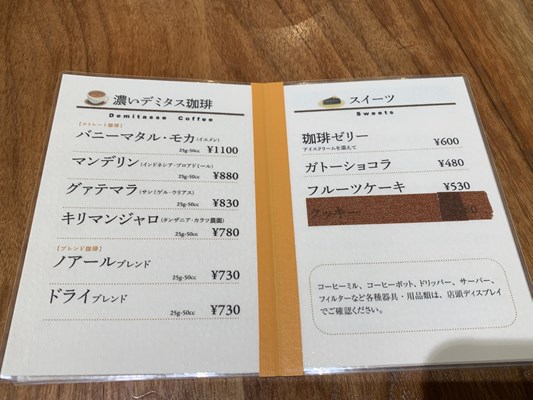 濃いデミタス珈琲
Demitasse Coffee
【ストレート珈琲】
バニーマタル・モカ(イエメン)
25g-50cc ¥1100
マンデリン(インドネシア・ブロアドミール)
25g-50cc ¥880
グァテマラ(サンミゲル・ウリアス)
25g-50cc ¥830
キリマンジャロ(タンザニア・カラツ農園)
25g-50cc ¥780
【ブレンド珈琲】
ノアールブレンド
25g-50cc ¥730
ドライブレンド
25g-50cc ¥730
スイーツ
Sweets
珈琲ゼリー ¥600
アイスクリームを添えて
ガトーショコラ ¥480
フルーツケーキ ¥530
クッキー
コーヒーミル、コーヒーポット、ドリッパー、サーバー、
フィルターなど各種器具・用品類は、店頭ディスプレイ
でご確認ください。